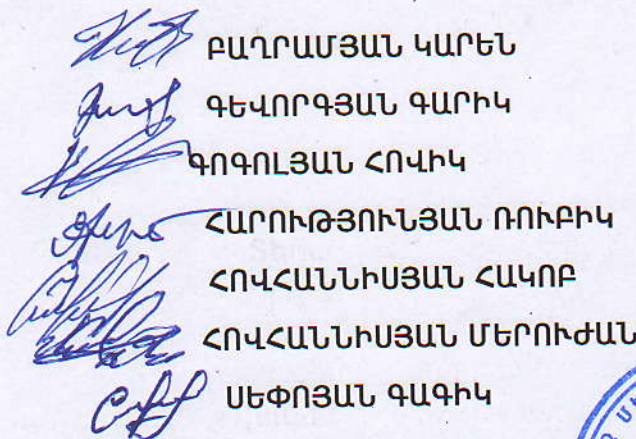 ԲԱՂՐԱՄՅԱՆ ԿԱՐԵՆ
ԳԵՎՈՐԳՅԱՆ ԳԱՐԻԿ
ԳՈԳՈԼՅԱՆ ՀՈՎԻԿ
ՀԱՐՈՒԹՅՈՒՆՅԱՆ ՌՈՒԲԻԿ
ՀՈՎՀԱՆՆԻՍՅԱՆ ՀԱԿՈԲ
ՀՈՎՀԱՆՆԻՍՅԱՆ ՄԵՐՈՒԺԱՆ
ՍԵՓՈՅԱՆ ԳԱԳԻԿ